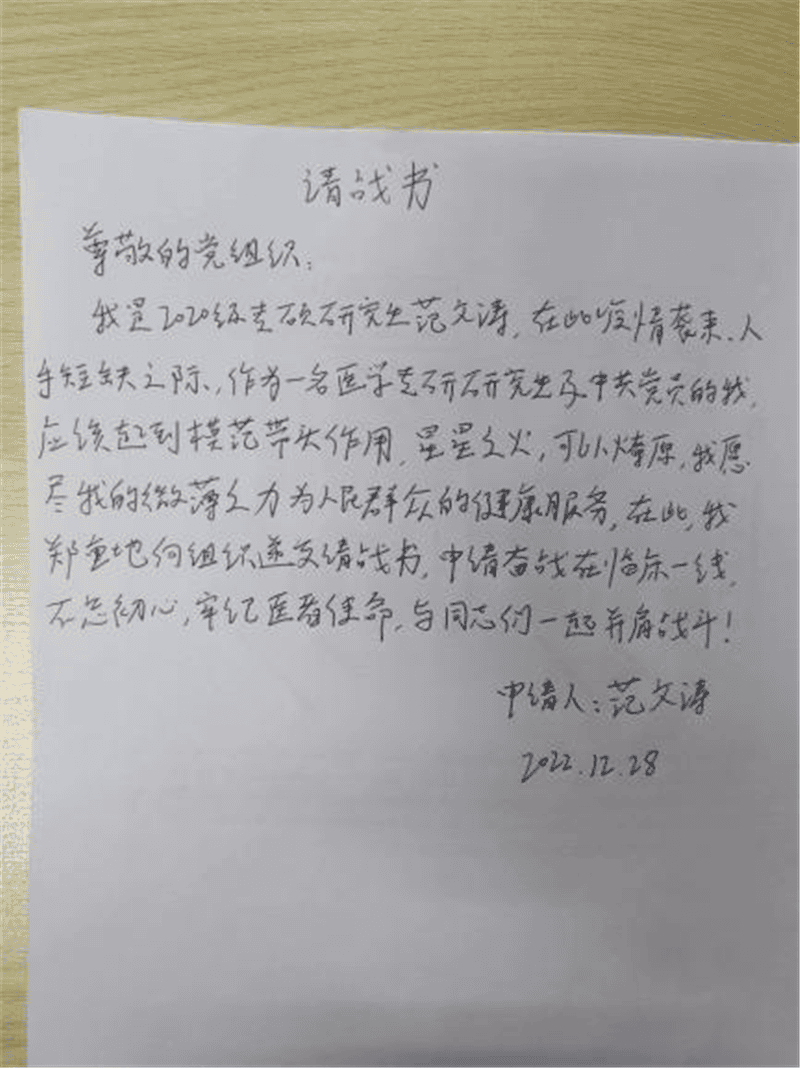 请战书
尊敬的党组织：
我是2020级专硕研究生范文涛，在此疫情袭来、人
手短缺之际，作为一名医学专研研究生及中共党员的我，
应该起到模范带头作用，星星之火，可以燎原，我愿
尽我的微薄之力为人民群众的健康服务，在此，我
郑重地向组织递交请战书，申请奋战在临床一线，
不忘初心，牢记医者使命，与同志们一起并肩战斗！
申请人：范文涛
2022.12.28